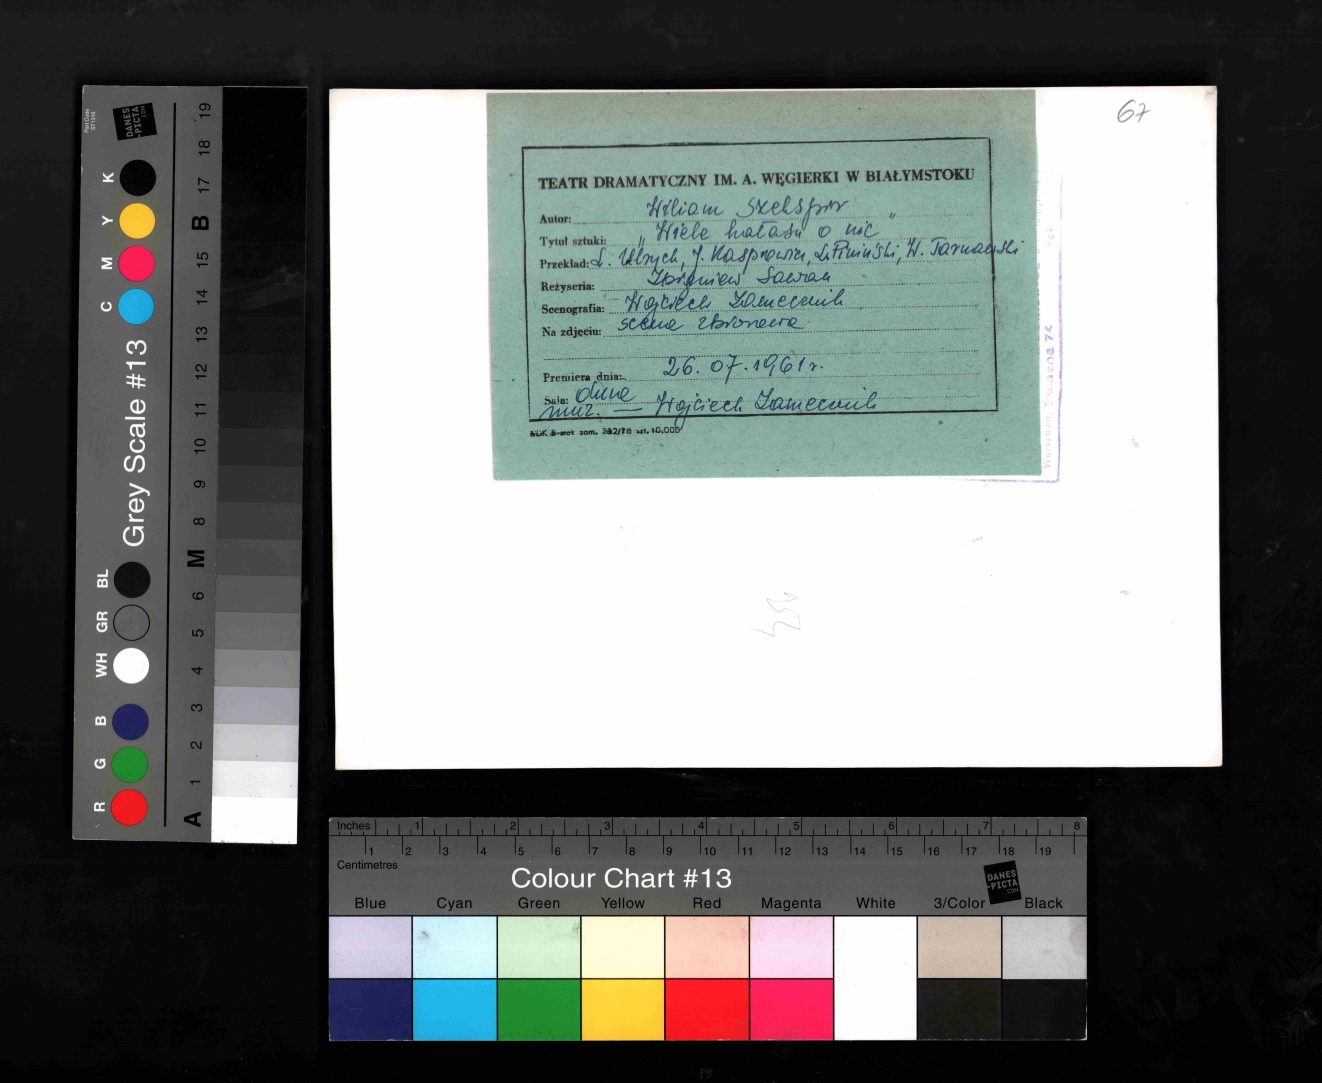 67
TEATR DRAMATYCZNY IM. A. WĘGIERKI W BIAŁYMSTOKU
Autor: Wiliam Szekspir
Tytuł sztuki: „Wiele hałasu o nic"
Przekład: L. Ulrych, J. Kasprowicz, L. Piwiński, W. Tarnawski
Reżyseria: Zbigniew Sawan
Scenografia: Wojciech Zamecznik
Na zdjęciu: scena zbiorowa
Premiera dnia: 26.07.1961 r.
Sala: duża
muz. — Wojciech Zamecznik
zam. 382/78 szt. 10.000
Part Code
ST1316
DANES
-PICTA
.COM
K Y M C
Grey Scale #13
BL GR WH B G R
A 1 2 3 4 5 6 M 8 9 10 11 12 13 14 15 B 17 18 19
Inches 1 2 3 4 5 6 7 8
1 2 3 4 5 6 7 8 9 10 11 12 13 14 15 16 17 18 19
Centimetres
Colour Chart #13
DANES
-PICTA
.COM
Blue Cyan Green Yellow Red Magenta White 3/Color Black